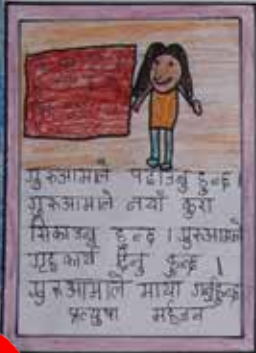 गुरुआमाले पढाउनु हुन्छ ।
गुरुआमाले नयाँ कुरा
सिकाउनु हुन्छ । गुरुआमाले
गृह कार्य दिनु हुन्छ ।
गुरुआमाले माया गर्नुहुन्छ
प्रत्युषा महर्जन